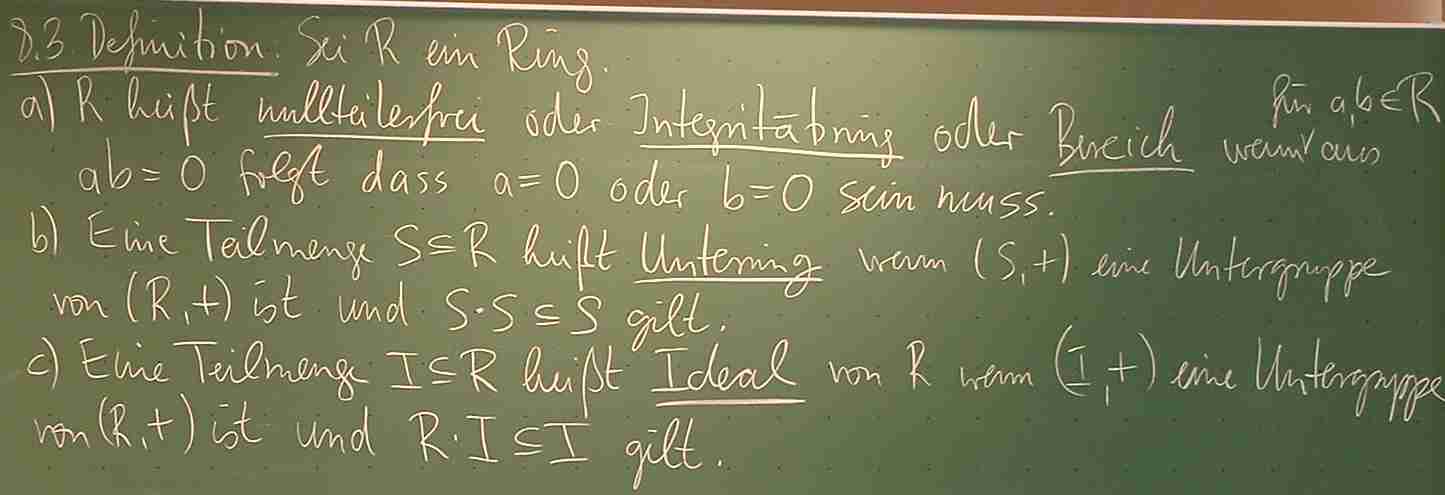 8.3. Definition. Sei R ein Ring.
a) R heißt nullteilerfrei oder Integritätsring oder Bereich wenn für a,b∈R aus
ab = 0 folgt dass a=0 oder b=0 sein muss.
b) Eine Teilmenge S⊆R heißt Unterring wenn (S,+) eine Untergruppe
von (R,+) ist und S·S⊆S gilt.
c) Eine Teilmenge I⊆R heißt Ideal von R wenn (I,+) eine Untergruppe
von (R,+) ist und R·I⊆I gilt.